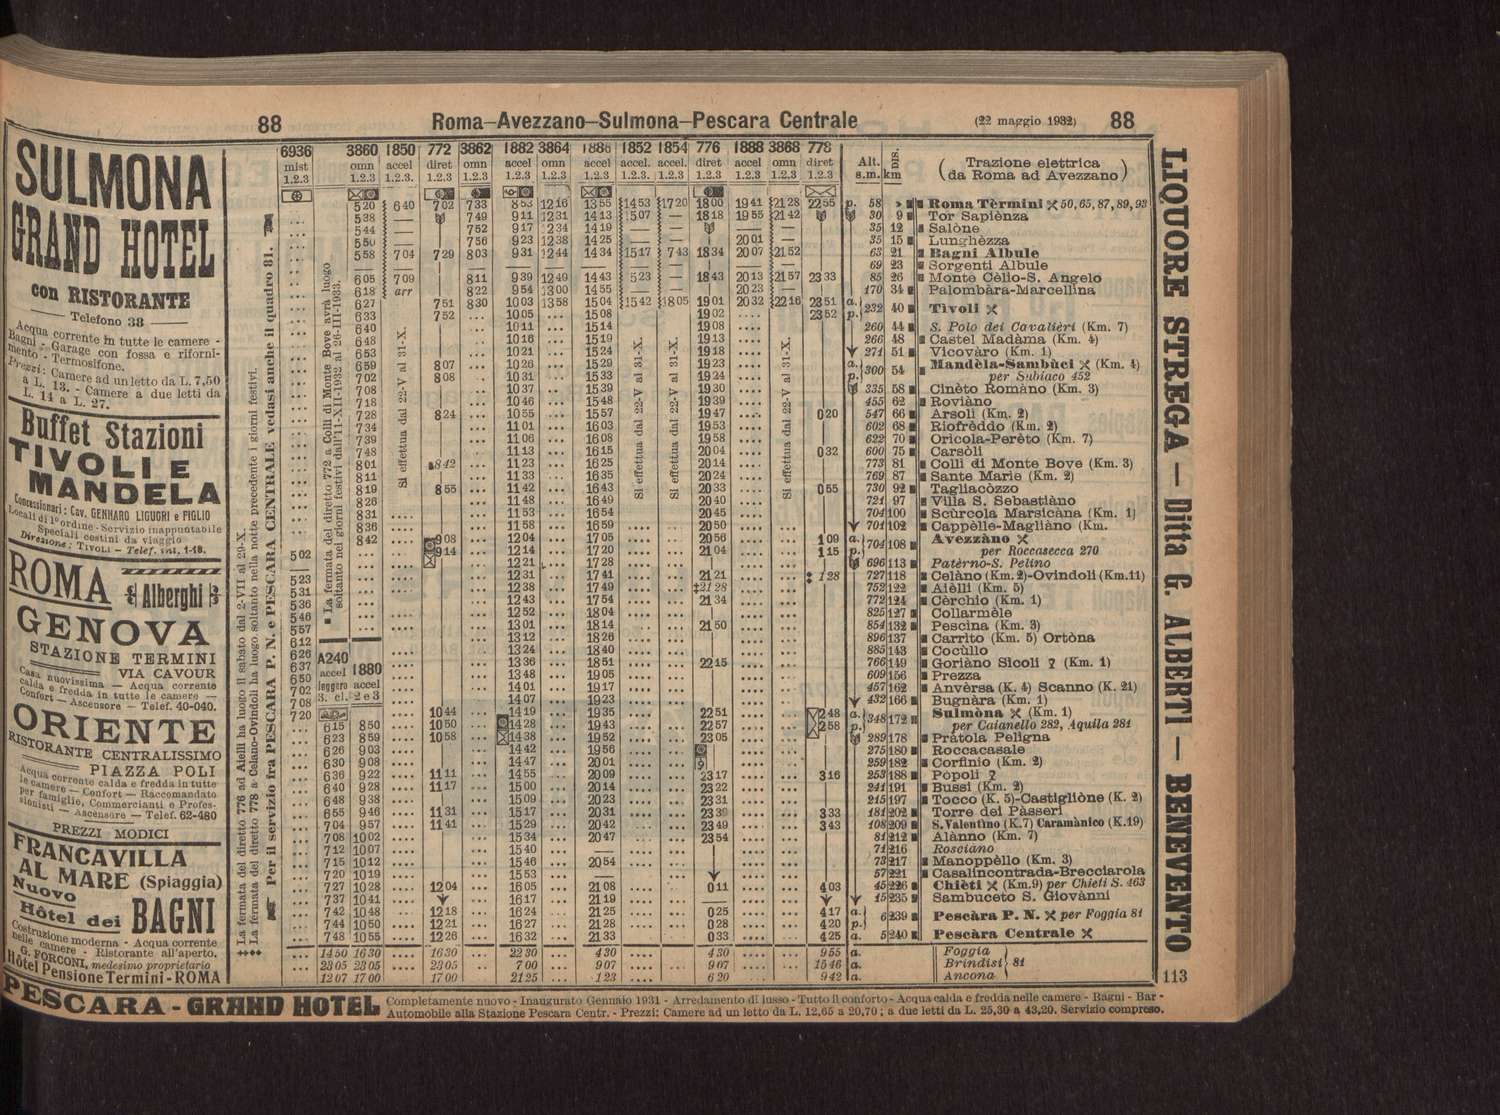 88
Roma—Avezzano—Sulmona—Pescara Centrale
(22 maggio 1932)
88
SULMONA
GRAND HOTEL
con RISTORANTE
Telefono 38
Acqua corrente in tutte le camere -
Bagni - Garage con fossa e riforni-
mento - Termosifone.
Prezzi: Camere ad un letto da L. 7,50
a L. 13. - Camere a due letti da
L. 14 a L. 27.
Buffet Stazioni
TIVOLI E
MANDELA
Concessionari: Cav. GENNARO LIGUORI e FIGLIO
Locali di 1º ordine - Servizio inappuntabile
Speciali cestini da viaggio
Direzione: TIVOLI — Telef. int. 1-18.
ROMA
Alberghi
GENOVA
STAZIONE TERMINI
VIA CAVOUR
Casa nuovissima — Acqua corrente
calda e fredda in tutte le camere —
Confort — Ascensore — Telef. 40-040.
ORIENTE
RISTORANTE CENTRALISSIMO
PIAZZA POLI
Acqua corrente calda e fredda in tutte
le camere — Confort — Raccomandato
per famiglie, Commercianti e Profes-
sionisti — Ascensore — Telef. 62-480
PREZZI MODICI
FRANCAVILLA
AL MARE (Spiaggia)
Nuovo
Hôtel dei BAGNI
Costruzione moderna - Acqua corrente
nelle camere - Ristorante all'aperto.
G. FORCONI, medesimo proprietario
Hôtel Pensione Termini - ROMA
La fermata del diretto 776 ad Aielli ha luogo il sabato dal 2-VII al 29-X.
La fermata del diretto 778 a Celano-Ovindoli ha luogo soltanto nella notte precedente i giorni festivi.
Per il servizio fra PESCARA P. N. e PESCARA CENTRALE vedasi anche il quadro 81.
La fermata del diretto 772 a Colli di Monte Bove avrà luogo
soltanto nei giorni festivi dall'11-XII-1932 al 26-III-1933.
6936 3860 1850 772 3862 1882 3864 1886 1852. 1854 776 1888 3868 778
mist omn accel diret omn accel omn accel accel. accel. diret accel omn diret
1.2.3 1.2.3 1.2.3. 1.2.3 1.2.3 1.2.3 1.2.3 1.2.3 1.2.3. 1.2.3. 1.2.3 1.2.3 1.2.3 1.2.3
Alt. s.m.
Dis. km
Trazione elettrica
(da Roma ad Avezzano)
5 20 6 40 7 02 7 33 8 53 12 16 13 55 14 53 17 20 18 00 19 41 21 28 22 55 p. 58 Roma Tèrmini 50, 65, 87, 89, 93
5 38 7 49 9 11 12 31 14 13 15 07 — 18 18 19 55 21 42 30 9 Tor Sapiènza
5 44 — 7 52 9 17 14 19 — — — 35 12 Salòne
5 50 — 7 56 9 23 12 38 14 25 — — 20 01 — 35 15 Lunghèzza
5 58 7 04 7 29 8 03 9 31 12 44 14 34 15 17 7 43 18 34 20 07 21 52 63 21 Bagni Albule
69 23 Sorgenti Albule
6 05 7 09 8 11 9 39 12 49 14 43 5 23 — 18 43 20 13 21 57 23 33 85 26 Monte Cèlio-S. Angelo
6 18 arr 8 22 9 54 13 00 14 55 — — 20 23 — 170 34 Palombàra-Marcellina
6 27 7 51 8 30 10 03 13 58 15 04 15 42 18 05 19 01 20 32 22 16 23 51 a.
6 33 7 52 ... 10 05 ... 15 08 19 02 ... 23 52 p. 232 40 Tivoli
6 40 ... 10 11 ... 15 14 19 08 ... 260 44 S. Polo dei Cavalièri (Km. 7)
6 48 ... 10 16 ... 15 19 19 13 ... 266 48 Castel Madàma (Km. 4)
6 53 ... 10 21 ... 15 24 19 18 ... 271 51 Vicovàro (Km. 1)
6 59 8 07 ... 10 26 ... 15 29 19 23 ... a. 300 54 Mandèla-Sambùci (Km. 4)
7 02 8 08 ... 10 31 ... 15 33 19 24 ... p. per Subiaco 452
7 08 ... 10 37 ... 15 39 19 30 ... 335 58 Cinèto Romàno (Km. 3)
7 18 ... 10 46 ... 15 48 19 39 ... 455 62 Roviàno
7 28 8 24 ... 10 55 ... 15 57 19 47 ... 0 20 547 66 Arsoli (Km. 2)
7 34 ... 11 01 ... 16 03 19 53 ... 602 68 Riofrèddo (Km. 2)
7 39 ... 11 06 ... 16 08 19 58 ... 622 70 Oricola-Perèto (Km. 7)
7 48 ... 11 13 ... 16 15 20 04 ... 0 32 600 75 Carsòli
8 01 8 42 ... 11 23 ... 16 25 20 14 ... 773 81 Colli di Monte Bove (Km. 3)
8 11 ... 11 33 ... 16 35 20 24 ... 769 87 Sante Marìe (Km. 2)
8 19 8 55 ... 11 42 ... 16 43 20 33 ... 0 55 730 92 Tagliacòzzo
8 26 ... 11 48 ... 16 49 20 40 ... 721 97 Villa S. Sebastiàno
8 31 .... ... 11 53 ... 16 54 20 45 ... 704 100 Scùrcola Marsicàna (Km. 1)
8 36 .... ... 11 58 ... 16 59 .... .... 20 50 ... 701 102 Cappèlle-Magliàno (Km.
8 42 .... 9 08 ... 12 04 ... 17 05 .... .... 20 56 ... 1 09 a. 704 108 Avezzàno
5 02 ... .... 9 14 ... 12 14 ... 17 20 .... .... 21 04 ... 1 15 p. per Roccasecca 270
— ... .... ... 12 21 ... 17 28 .... .... ... 696 113 Patèrno-S. Pelino
5 23 ... .... ... 12 31 ... 17 41 .... .... 21 21 ... 1 28 727 118 Celàno (Km. 2)-Ovindoli (Km.11)
5 31 ... .... ... 12 38 ... 17 49 .... .... ‡21 28 ... 752 122 Aièlli (Km. 5)
5 36 ... .... ... 12 43 ... 17 54 .... .... 21 34 ... 772 124 Cèrchio (Km. 1)
5 46 ... .... ... 12 52 ... 18 04 .... .... ... 825 127 Collarmèle
5 57 ... .... ... 13 01 ... 18 14 .... .... 21 50 ... 854 132 Pescina (Km. 3)
6 12 ... 13 12 ... 18 26 .... .... ... 896 137 Carrìto (Km. 5) Ortòna
6 26 ... 13 24 ... 18 40 .... .... ... 885 143 Cocùllo
6 37 ... 13 36 ... 18 51 .... .... 22 15 ... 766 149 Goriàno Sìcoli (Km. 1)
6 50 ... 13 48 ... 19 05 .... .... ... 609 156 Prezza
7 02 ... 14 01 ... 19 17 .... .... ... 457 162 Anvèrsa (K. 4) Scanno (K. 21)
7 08 ... 14 07 ... 19 23 .... .... ... 432 166 Bugnàra (Km. 1)
A240 1880
accel
leggero accel
3. cl. 2 e 3
7 20 10 44 ... 14 19 ... 19 35 .... .... 22 51 ... 2 48 a. 348 172 Sulmòna (Km. 1)
6 15 8 50 .... 10 50 ... 14 28 ... 19 43 .... .... 22 57 ... 2 58 p. per Caianello 282, Aquila 281
6 23 8 59 .... 10 58 ... 14 38 ... 19 52 .... .... 23 05 ... 289 178 Pràtola Peligna
6 26 9 03 .... ... 14 42 ... 19 56 .... .... ... 275 180 Roccacasale
6 30 9 08 .... ... 14 47 ... 20 01 .... .... ... 259 182 Corfinio (Km. 2)
6 36 9 22 .... 11 11 ... 14 55 ... 20 09 .... .... 23 17 ... 3 16 253 188 Pòpoli
6 40 9 28 .... 11 17 ... 15 00 ... 20 14 .... .... 23 22 ... 241 191 Bussi (Km. 2)
6 48 9 38 .... ... 15 09 ... 20 23 .... .... 23 31 ... 215 197 Tocco (K. 5)-Castigliòne (K. 2)
6 55 9 46 .... 11 31 ... 15 17 ... 20 31 .... .... 23 39 ... 3 33 181 202 Torre dei Pàsseri
7 04 9 57 .... 11 41 ... 15 29 ... 20 42 .... .... 23 49 ... 3 43 108 209 S. Valentino (K.7) Caramànico (K.19)
7 08 10 02 .... ... 15 34 ... 20 47 .... .... 23 54 ... 81 212 Alànno (Km. 7)
7 12 10 07 .... ... 15 40 ... — .... .... ... 71 216 Rosciano
7 15 10 12 .... ... 15 46 ... 20 54 .... .... ... 73 217 Manoppèllo (Km. 3)
7 20 10 19 .... ... 15 54 ... — .... .... ... 57 221 Casalincontrada-Brecciarola
7 27 10 28 .... 12 04 ... 16 05 ... 21 08 .... .... 0 11 ... 4 03 45 226 Chièti (Km.9) per Chieti S. 463
7 37 10 41 .... ... 16 17 ... 21 19 .... .... ... 15 235 Sambuceto S. Giovànni
7 42 10 48 .... 12 18 ... 16 24 ... 21 25 .... .... 0 25 ... 4 17 a. 6 239 Pescàra P. N. per Foggia 81
7 44 10 50 .... 12 21 ... 16 27 ... 21 28 .... .... 0 28 ... 4 20 p.
7 48 10 55 .... 12 26 ... 16 32 ... 21 33 .... .... 0 33 ... 4 25 a. 5 240 Pescàra Centrale
... 14 50 16 30 .... 16 30 ... 22 30 ... 4 30 .... .... 4 30 ... 9 55 a. Foggia
... 23 05 23 05 .... 23 05 ... 7 00 ... 9 07 .... .... 9 07 ... 15 46 a. Brindisi 81
... 12 07 17 00 .... 17 00 ... 21 25 ... 1 23 .... .... 6 20 ... 9 42 a. Ancona
Si effettua dal 22-V al 31-X.
Si effettua dal 22-V al 31-X.
Si effettua dal 22-V al 31-X.
Si effettua dal 22-V al 31-X.
LIQUORE STREGA — Ditta G. ALBERTI — BENEVENTO
113
PESCARA - GRAND HOTEL
Completamente nuovo - Inaugurato Gennaio 1931 - Arredamento di lusso - Tutto il conforto - Acqua calda e fredda nelle camere - Bagni - Bar -
Automobile alla Stazione Pescara Centr. - Prezzi: Camere ad un letto da L. 12,65 a 20,70; a due letti da L. 25,30 a 43,20. Servizio compreso.